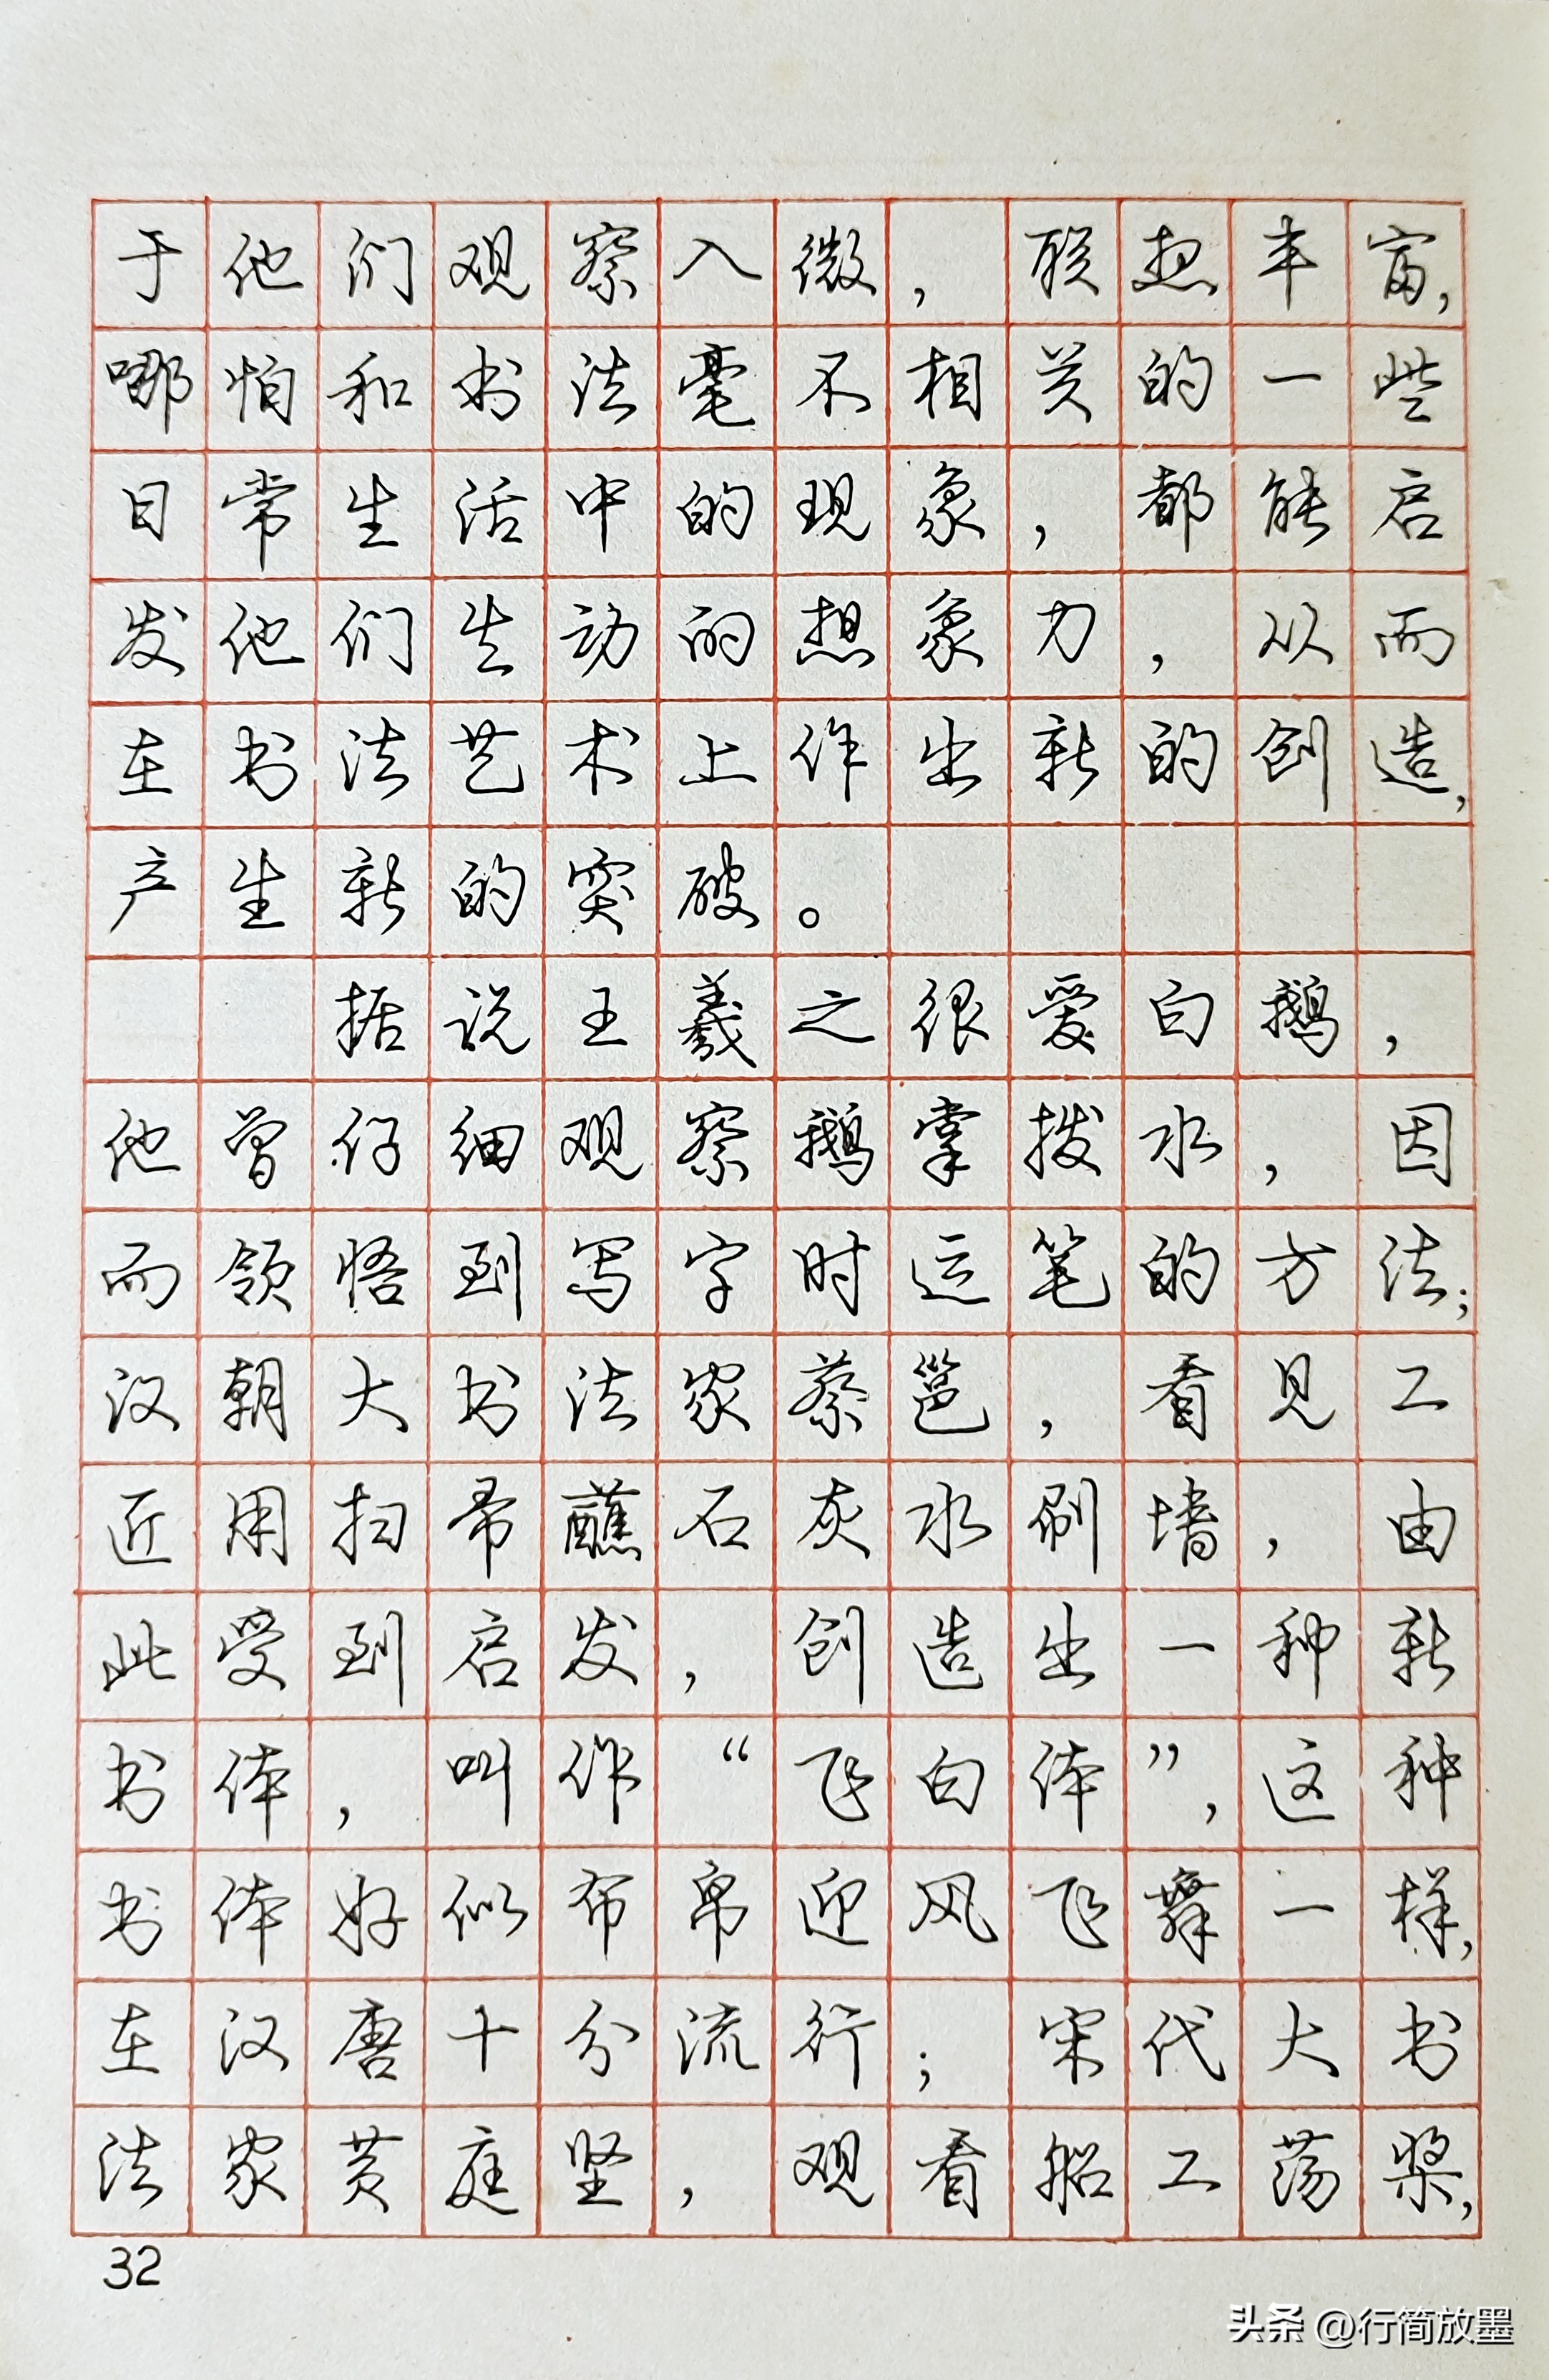 于他们观察入微，联想丰富，
哪怕和书法毫不相关的一些
日常生活中的现象，都能启
发他们生动的想象力，从而
在书法艺术上作出新的创造，
产生新的突破。
据说王羲之很爱白鹅，
他曾仔细观察鹅掌拨水，因
而领悟到写字时运笔的方法；
汉朝大书法家蔡邕，看见工
匠用扫帚蘸石灰水刷墙，由
此受到启发，创造出一种新
书体，叫作“飞白体”，这种
书体好似布帛迎风飞舞一样，
在汉唐十分流行；宋代大书
法家黄庭坚，观看船工荡桨，
32
头条 @行简放墨